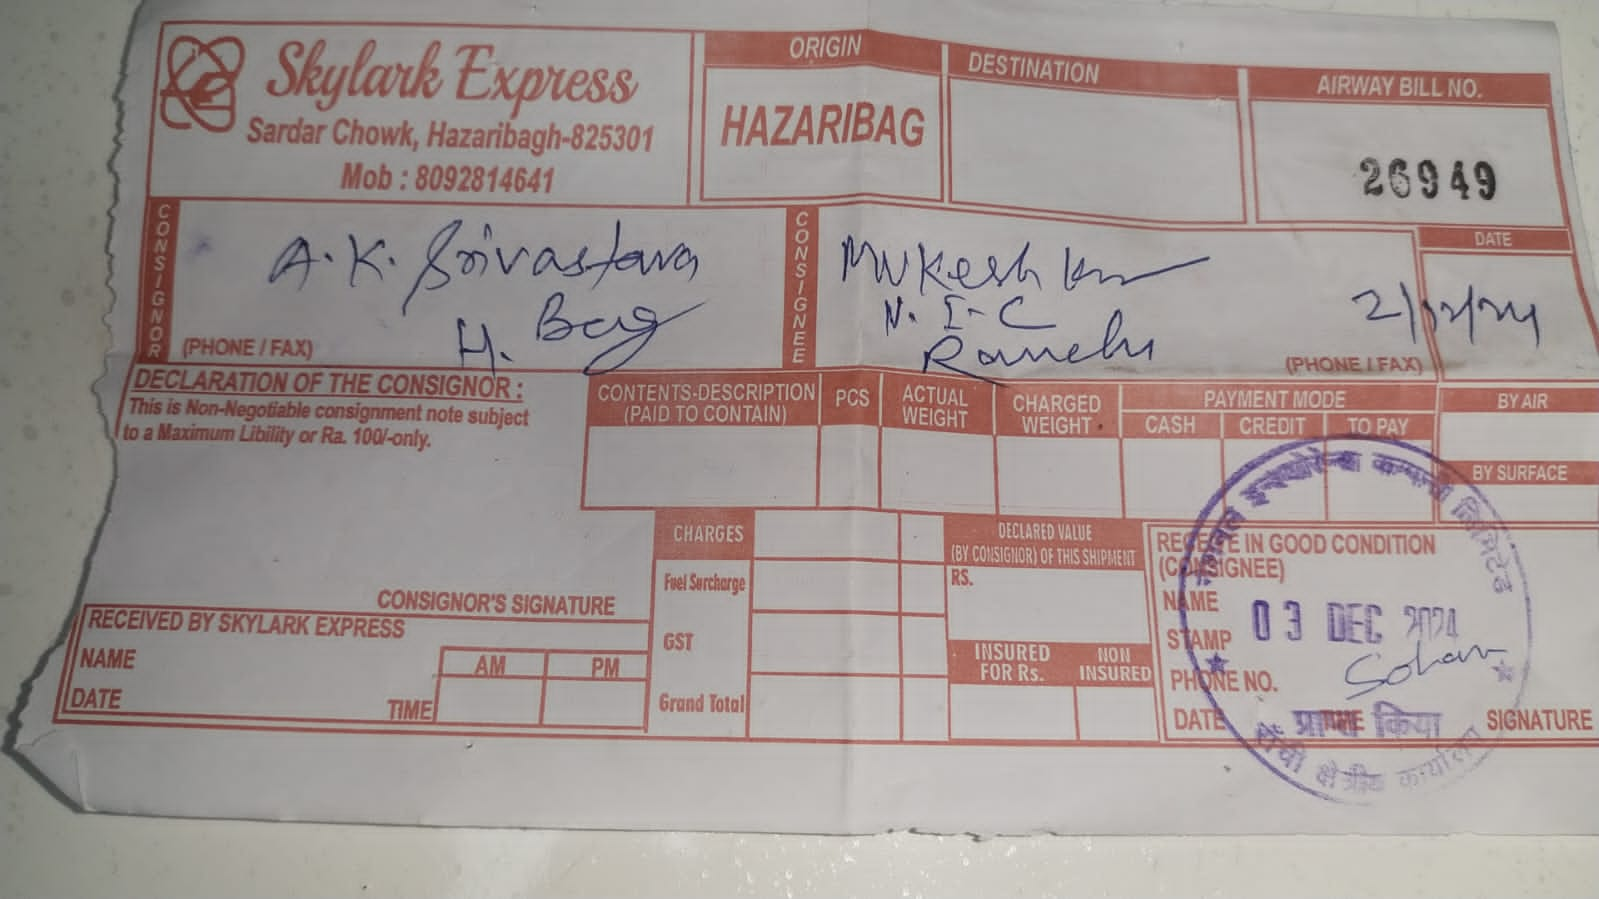 Skylark Express
Sardar Chowk, Hazaribagh-825301
Mob : 8092814641
ORIGIN
HAZARIBAG
DESTINATION
AIRWAY BILL NO.
26949
CONSIGNOR
A. K. Srivastava
H. Bag
(PHONE / FAX)
CONSIGNEE
Mukesh Kr
N. I. C
Ranchi
(PHONE / FAX)
DATE
2/12/24
DECLARATION OF THE CONSIGNOR :
This is Non-Negotiable consignment note subject
to a Maximum Libility or Ra. 100/-only.
CONSIGNOR'S SIGNATURE
CONTENTS-DESCRIPTION
(PAID TO CONTAIN)
PCS
ACTUAL
WEIGHT
CHARGED
WEIGHT
PAYMENT MODE
CASH CREDIT TO PAY
BY AIR
BY SURFACE
RECEIVED BY SKYLARK EXPRESS
NAME
DATE
TIME
AM PM
CHARGES
Fuel Surcharge
GST
Grand Total
DECLARED VALUE
(BY CONSIGNOR) OF THIS SHIPMENT
RS.
INSURED
FOR Rs.
NON
INSURED
RECEIVE IN GOOD CONDITION
(CONSIGNEE)
NAME
STAMP
PHONE NO.
DATE TIME SIGNATURE
नेशनल इन्श्योरेन्स कम्पनी लिमिटेड
03 DEC 2024
प्राप्त किया
राँची क्षेत्रीय कार्यालय